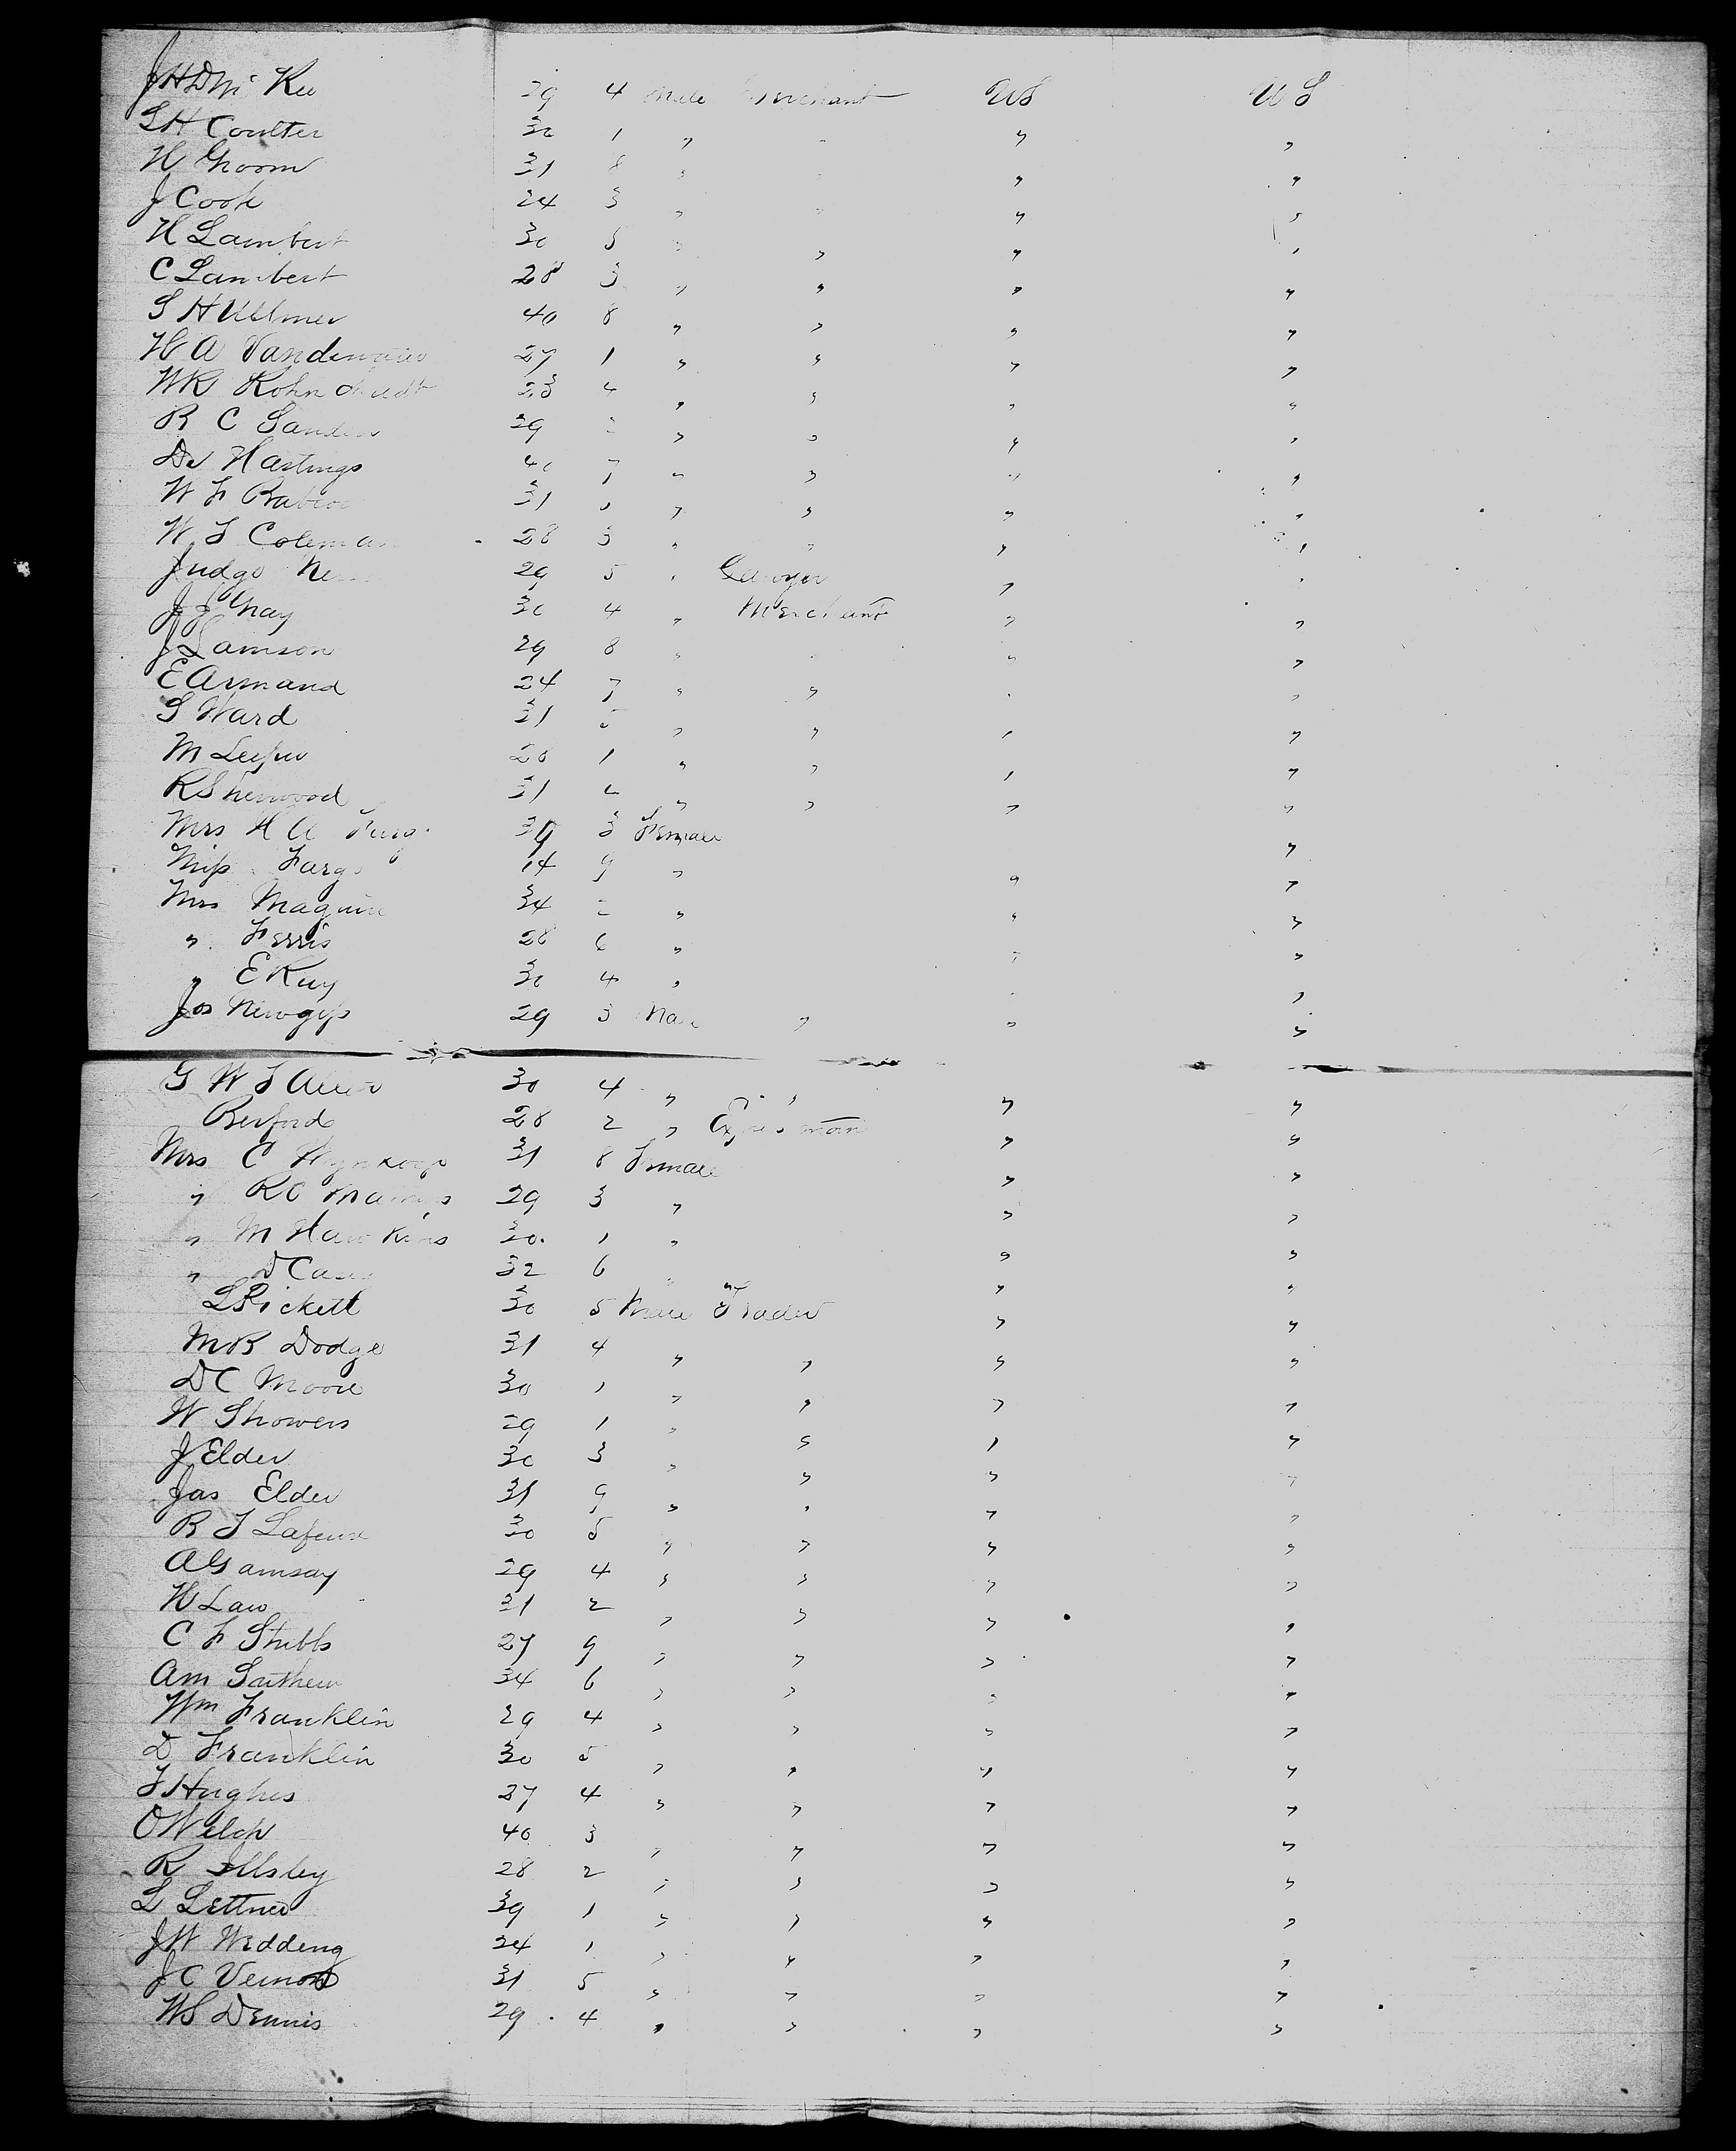 JHD Mc Kee 29 4 Male Merchant US US
S H Coulter 30 1 " " " "
H Groom 31 8 " " "
J Cook 24 3 " " " "
H Lambert 30 5 " " " "
C Lambert 28 3 " " " "
S H Ullmer 40 8 " " " "
H A Vandewater 27 1 " " " "
W R 23 4 " " " "
R C Sanders 29 " " " "
Dr Hastings 40 7 " " " "
W F Babcoc 31 " " " "
W T Coleman 28 3 " " " "
Judge 29 5 " Lawyer " "
J J Gray 30 4 " Merchant " "
J Lamson 29 8 " " "
E Armand 24 7 " " " "
S Ward 31 5 " " " "
M Leefer 28 1 " " " "
R Sherwood 31 2 " " " "
Mrs H A Fargo 39 3 Female "
Miss Fargo 14 9 " " "
Mrs Maguire 34 2 " " "
" Ferris 28 6 " " "
" E Ray 30 4 " " "
Jos Newgiss 29 3 Male " " "
G W T Allen 30 4 " " " "
Berford 28 2 " Express man " "
Mrs C Wynkoop 31 8 Female " "
" R C 29 3 " " "
" M Hawkins 30 1 " " "
" D Casey 32 6 " " "
L Rickett 30 5 Male Trader " "
M B Dodge 31 4 " " " "
D C Moore 30 1 " " " "
W Showers 29 1 " " " "
J Elder 30 3 " " " "
Jas Elder 31 9 " " " "
B T Lafeure 30 5 " " " "
A Gamsay 29 4 " " " "
H Law 31 2 " " " "
C F Stubbs 27 9 " " " "
Am Saithew 34 6 " " " "
Wm Franklin 29 4 " " " "
D Franklin 30 5 " " " "
T Hughes 27 4 " " " "
O Welch 40 3 " " " "
R Illsley 28 2 " " " "
L Lettner 39 1 " " " "
J W Wedding 24 1 " " " "
J C Vernon 31 5 " " " "
W S Dennis 29 4 " " " "